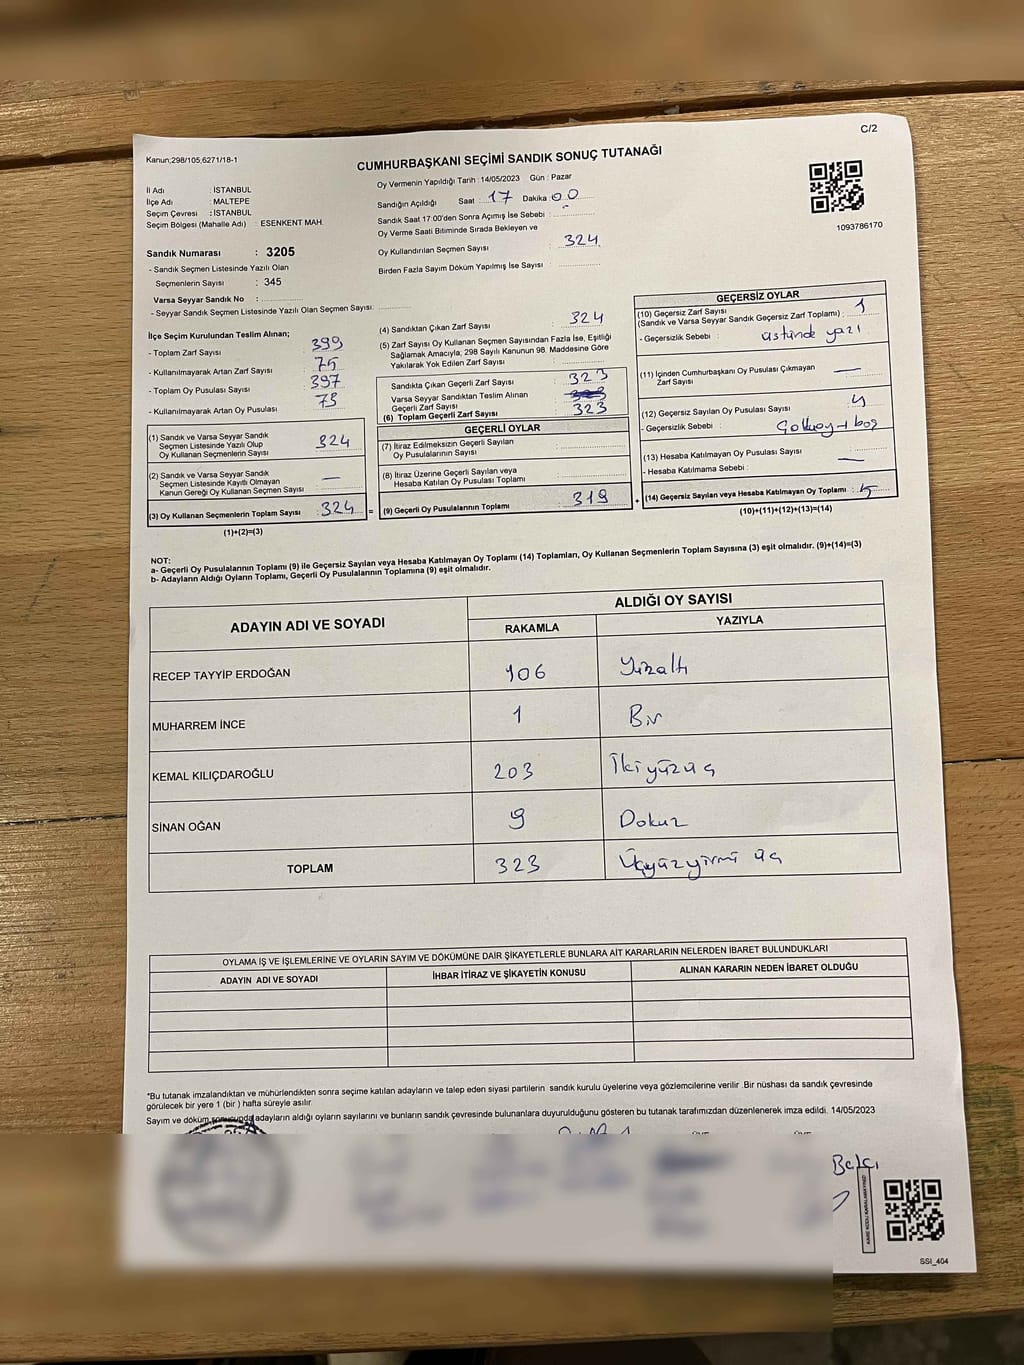 C/2
Kanun;298/105,6271/18-1
CUMHURBAŞKANI SEÇİMİ SANDIK SONUÇ TUTANAĞI
İl Adı : İSTANBUL
İlçe Adı : MALTEPE
Seçim Çevresi : İSTANBUL
Seçim Bölgesi (Mahalle Adı) : ESENKENT MAH.
Sandık Numarası : 3205
- Sandık Seçmen Listesinde Yazılı Olan
Seçmenlerin Sayısı : 345
Varsa Seyyar Sandık No :
- Seyyar Sandık Seçmen Listesinde Yazılı Olan Seçmen Sayısı:
Oy Vermenin Yapıldığı Tarih :14/05/2023 Gün : Pazar
Sandığın Açıldığı Saat : 17 Dakika :00
Sandık Saat 17:00'den Sonra Açımış İse Sebebi :
Oy Verme Saati Bitiminde Sırada Bekleyen ve
Oy Kullandırılan Seçmen Sayısı : 324
Birden Fazla Sayım Döküm Yapılmış İse Sayısı :
1093786170
İlçe Seçim Kurulundan Teslim Alınan;
- Toplam Zarf Sayısı : 399
- Kullanılmayarak Artan Zarf Sayısı : 75
- Toplam Oy Pusulası Sayısı : 397
- Kullanılmayarak Artan Oy Pusulası : 73
(1) Sandık ve Varsa Seyyar Sandık
Seçmen Listesinde Yazılı Olup
Oy Kullanan Seçmenlerin Sayısı : 324
(2) Sandık ve Varsa Seyyar Sandık
Seçmen Listesinde Kayıtlı Olmayan
Kanun Gereği Oy Kullanan Seçmen Sayısı : —
(3) Oy Kullanan Seçmenlerin Toplam Sayısı : 324 =
(1)+(2)=(3)
(4) Sandıktan Çıkan Zarf Sayısı : 324
(5) Zarf Sayısı Oy Kullanan Seçmen Sayısından Fazla İse, Eşitliği
Sağlamak Amacıyla, 298 Sayılı Kanunun 98. Maddesine Göre
Yakılarak Yok Edilen Zarf Sayısı :
Sandıkta Çıkan Geçerli Zarf Sayısı : 323
Varsa Seyyar Sandıktan Teslim Alınan
Geçerli Zarf Sayısı :
(6) Toplam Geçerli Zarf Sayısı : 323
GEÇERLİ OYLAR
(7) İtiraz Edilmeksizin Geçerli Sayılan
Oy Pusulalarının Sayısı :
(8) İtiraz Üzerine Geçerli Sayılan veya
Hesaba Katılan Oy Pusulası Toplamı :
(9) Geçerli Oy Pusulalarının Toplamı : 319 +
GEÇERSİZ OYLAR
(10) Geçersiz Zarf Sayısı
(Sandık ve Varsa Seyyar Sandık Geçersiz Zarf Toplamı) : 1
- Geçersizlik Sebebi : üstünde yazı
(11) İçinden Cumhurbaşkanı Oy Pusulası Çıkmayan
Zarf Sayısı : —
(12) Geçersiz Sayılan Oy Pusulası Sayısı : 4
- Geçersizlik Sebebi : boş
(13) Hesaba Katılmayan Oy Pusulası Sayısı :
- Hesaba Katılmama Sebebi : —
(14) Geçersiz Sayılan veya Hesaba Katılmayan Oy Toplamı : 5
(10)+(11)+(12)+(13)=(14)
NOT:
a- Geçerli Oy Pusulalarının Toplamı (9) ile Geçersiz Sayılan veya Hesaba Katılmayan Oy Toplamı (14) Toplamları, Oy Kullanan Seçmenlerin Toplam Sayısına (3) eşit olmalıdır. (9)+(14)=(3)
b- Adayların Aldığı Oyların Toplamı, Geçerli Oy Pusulalarının Toplamına (9) eşit olmalıdır.
ADAYIN ADI VE SOYADI ALDIĞI OY SAYISI
RAKAMLA YAZIYLA
RECEP TAYYİP ERDOĞAN 106 Yüzaltı
MUHARREM İNCE 1 Bir
KEMAL KILIÇDAROĞLU 203 İkiyüzüç
SİNAN OĞAN 9 Dokuz
TOPLAM 323 Üçyüzyirmi üç
OYLAMA İŞ VE İŞLEMLERİNE VE OYLARIN SAYIM VE DÖKÜMÜNE DAİR ŞİKAYETLERLE BUNLARA AİT KARARLARIN NELERDEN İBARET BULUNDUKLARI
ADAYIN ADI VE SOYADI İHBAR İTİRAZ VE ŞİKAYETİN KONUSU ALINAN KARARIN NEDEN İBARET OLDUĞU
*Bu tutanak imzalandıktan ve mühürlendikten sonra seçime katılan adayların ve talep eden siyasi partilerin sandık kurulu üyelerine veya gözlemcilerine verilir .Bir nüshası da sandık çevresinde
görülecek bir yere 1 (bir ) hafta süreyle asılır
Sayım ve döküm sonucunda adayların aldığı oyların sayılarını ve bunların sandık çevresinde bulunanlara duyurulduğunu gösteren bu tutanak tarafımızdan düzenlenerek imza edildi. 14/05/2023
KARE KODU KARALAMAYINIZ!
SSI_404